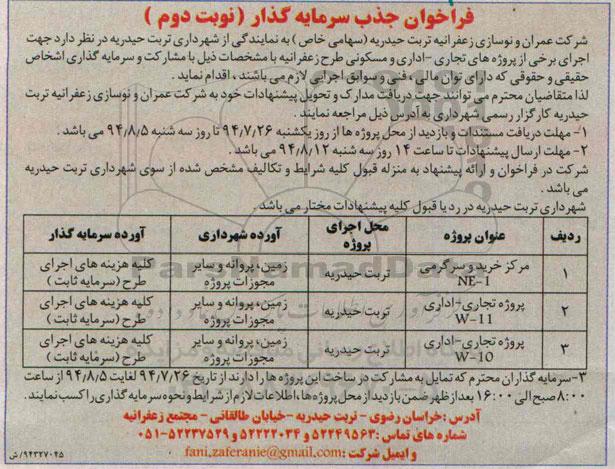 فراخوان جذب سرمایه گذار ( نوبت دوم )
شرکت عمران و نوسازی زعفرانیه تربت حیدریه (سهامی خاص ) به نمایندگی از شهرداری تربت حیدریه در نظر دارد جهت
اجرای برخی از پروژه های تجاری -اداری و مسکونی طرح زعفرانیه با مشخصات ذیل با مشارکت و سرمایه گذاری اشخاص
حقیقی و حقوقی که دارای توان مالی ، فنی و سوابق اجرایی لازم می باشند ، اقدام نماید .
لذا متقاضیان محترم می توانند جهت دریافت مدارک و تحویل پیشنهادات خود به شرکت عمران و نوسازی زعفرانیه تربت
حیدریه کارگزار رسمی شهرداری به آدرس ذیل مراجعه نمایند .
۱- مهلت دریافت مستندات و بازدید از محل پروژه ها از روز یکشنبه ۹۴/۷/۲۶ تا روز سه شنبه ۹۴/۸/۵ می باشد .
۲- مهلت ارسال پیشنهادات تا ساعت ۱۴ روز سه شنبه ۹۴/۸/۱۲ می باشد .
شرکت در فراخوان و ارائه پیشنهاد به منزله قبول کلیه شرایط و تکالیف مشخص شده از سوی شهرداری تربت حیدریه
می باشد .
شهرداری تربت حیدریه در رد یا قبول کلیه پیشنهادات مختار می باشد .
ردیف عنوان پروژه محل اجرای پروژه آورده شهرداری آورده سرمایه گذار
۱ مرکز خرید و سرگرمی NE-1 تربت حیدریه زمین، پروانه و سایر مجوزات پروژه کلیه هزینه های اجرای طرح (سرمایه ثابت )
۲ پروژه تجاری-اداری W-11 تربت حیدریه زمین، پروانه و سایر مجوزات پروژه کلیه هزینه های اجرای طرح (سرمایه ثابت )
۳ پروژه تجاری-اداری W-10 تربت حیدریه زمین، پروانه و سایر مجوزات پروژه کلیه هزینه های اجرای طرح (سرمایه ثابت )
۳-سرمایه گذاران محترم که تمایل به مشارکت در ساخت این پروژه ها را دارند از تاریخ ۹۴/۷/۲۶ لغایت ۹۴/۸/۵ از ساعت
۸:۰۰ صبح الی ۱۶:۰۰ بعد از ظهر ضمن بازدید از محل پروژه ها، اطلاعات لازم از شرایط و نحوه سرمایه گذاری را کسب نمایند.
آدرس : خراسان رضوی - تربت حیدریه -خیابان طالقانی - مجتمع زعفرانیه
شماره های تماس : ۵۲۲۴۹۵۶۳ و ۵۲۲۲۲۰۳۴ و ۰۵۱-۵۲۲۳۷۵۲۹
و ایمیل شرکت : fani.zaferanie@gmail.com
۹۴۳۲۷۰۴۵/ش